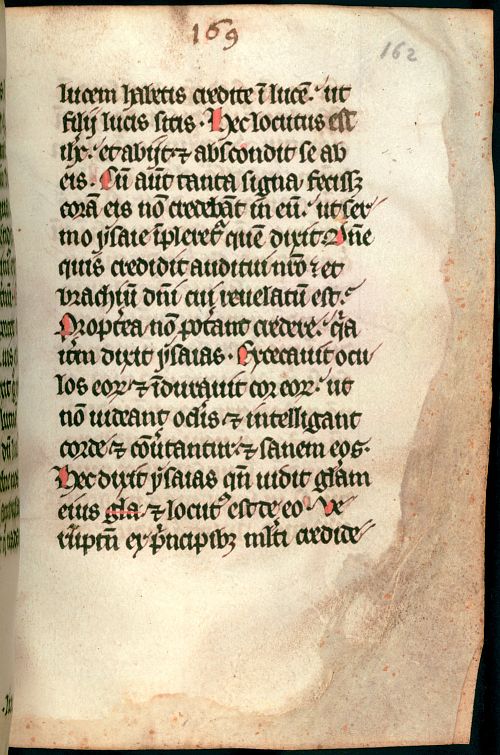 169
162
lucem habetis credite ī lucē. ut
filij lucis sitis. Hec locutus est
ihc. et abijt ⁊ abscondit se ab
eis. Cū aūt tanta signa fecissꝫ
corā eis nō credebāt in eū. ut ser
mo ysaie īpleretᷣ quē dixit. Dn̄e
quis credidit auditui nr̄o ⁊ et
brachiū dn̄i cui reuelatū est.
Propt̄ea nō pot̄ant credere. qͥa
itm̄ dixit ysaias. Excecauit ocu
los eoꝝ ⁊ īdurauit cor eoꝝ. ut
nō uideant ocl̄is ⁊ intelligant
corde ⁊ cōu̅tantur. ⁊ sanem eos.
Hec dixit ysaias qn̄ uidit gl̄am
eius gl̄a. ⁊ locutꝰ est de eo. Ve
rūptn̄ ex pͥncipibꝫ ml̄ti credide